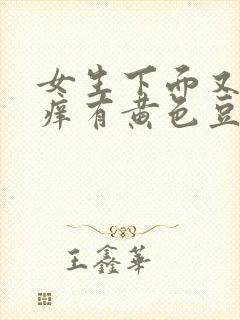 女生下面又
痒有黄色豆
王鑫华